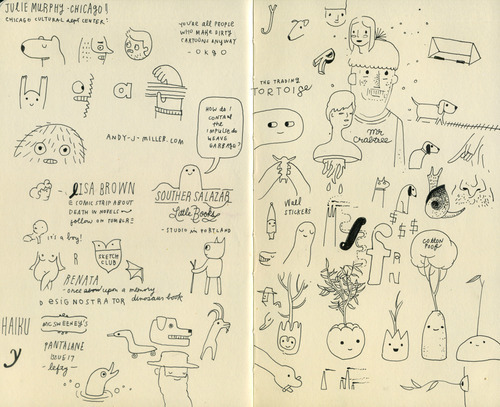 JULIE MURPHY - CHICAGO!
CHICAGO CULTURAL ARTS CENTER
YOU'RE ALL PEOPLE
WHO MAKE DIRTY
CARTOONS ANYWAY
- OKGO
a
ANDY-J-MILLER.COM
HOW DO I
CONTROL
THE
IMPULSE to
WEAVE
GARBAGE?
LISA BROWN
COMIC STRIP ABOUT
DEATH
follow on TUMBLR
SOUTHER SALAZAR
Little Books
- STUDIO in PORTLAND
it's a boy!
R
SKETCH
CLUB
RENATA
- once upon a memory
dinosaurs book
DESIGNOSTRATOR
HAIKU
MCSWEENEY'S
y
PANTALANE
ISSUE 17
- lefty -
y
THE TRADING
TORTOISE
mr
Crabtree
Wall
STICKERS
$$
$$
COTTON
POOF